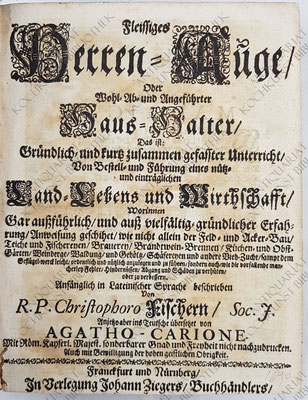 Fleissiges
Herren-Auge/
Oder
Wohl-Ab- und Angeführter
Haus-Halter/
Das ist:
Gründlich- und kurtz zusammen gefaster Unterricht/
Von Bestell- und Führung eines nütz-
und einträglichen
Land-Lebens und Wirthschafft/
Worinnen
Gar außführlich/ und auß vielfältig-gründlicher Erfah-
rung/ Anweisung geschihet/ wie nicht allein der Feld- und Acker-Bau/
Teicht und Fischereyen/ Brauereu/ Brandtwein-Brennen/ Küchen- und Obst-
Gärten/ Weinberge/ Waldung/ und Gehöltz/ Schäfereyen und andere Vieh-Zucht/ sampt dem
Geflügelwerck/ leicht/ ordentlich und nützlich anzulegen und zu führen/ sondern auch/ wie die vorfallende man-
cherley Fehler/ Hindernüssen/ Abgang und Schäden zu verhüten/
oder zu verbessern.
Anfänglich in Lateinischer Sprache beschrieben
Von
R. P. Christophoro Fischern/ Soc. J.
Anjetzo aber ins Teutsche übersetzt von
AGATHO-CARIONE.
Mit Röm. Kayserl. Majest. sonderbarer Gnad und Freyheit nicht nachzudrucken.
Auch mit Bewilligung der hohen geistlichen Obrigkeit.
Franckfurt und Nürnberg/
In Verlegung Johann Ziegers/ Buchhändlers/